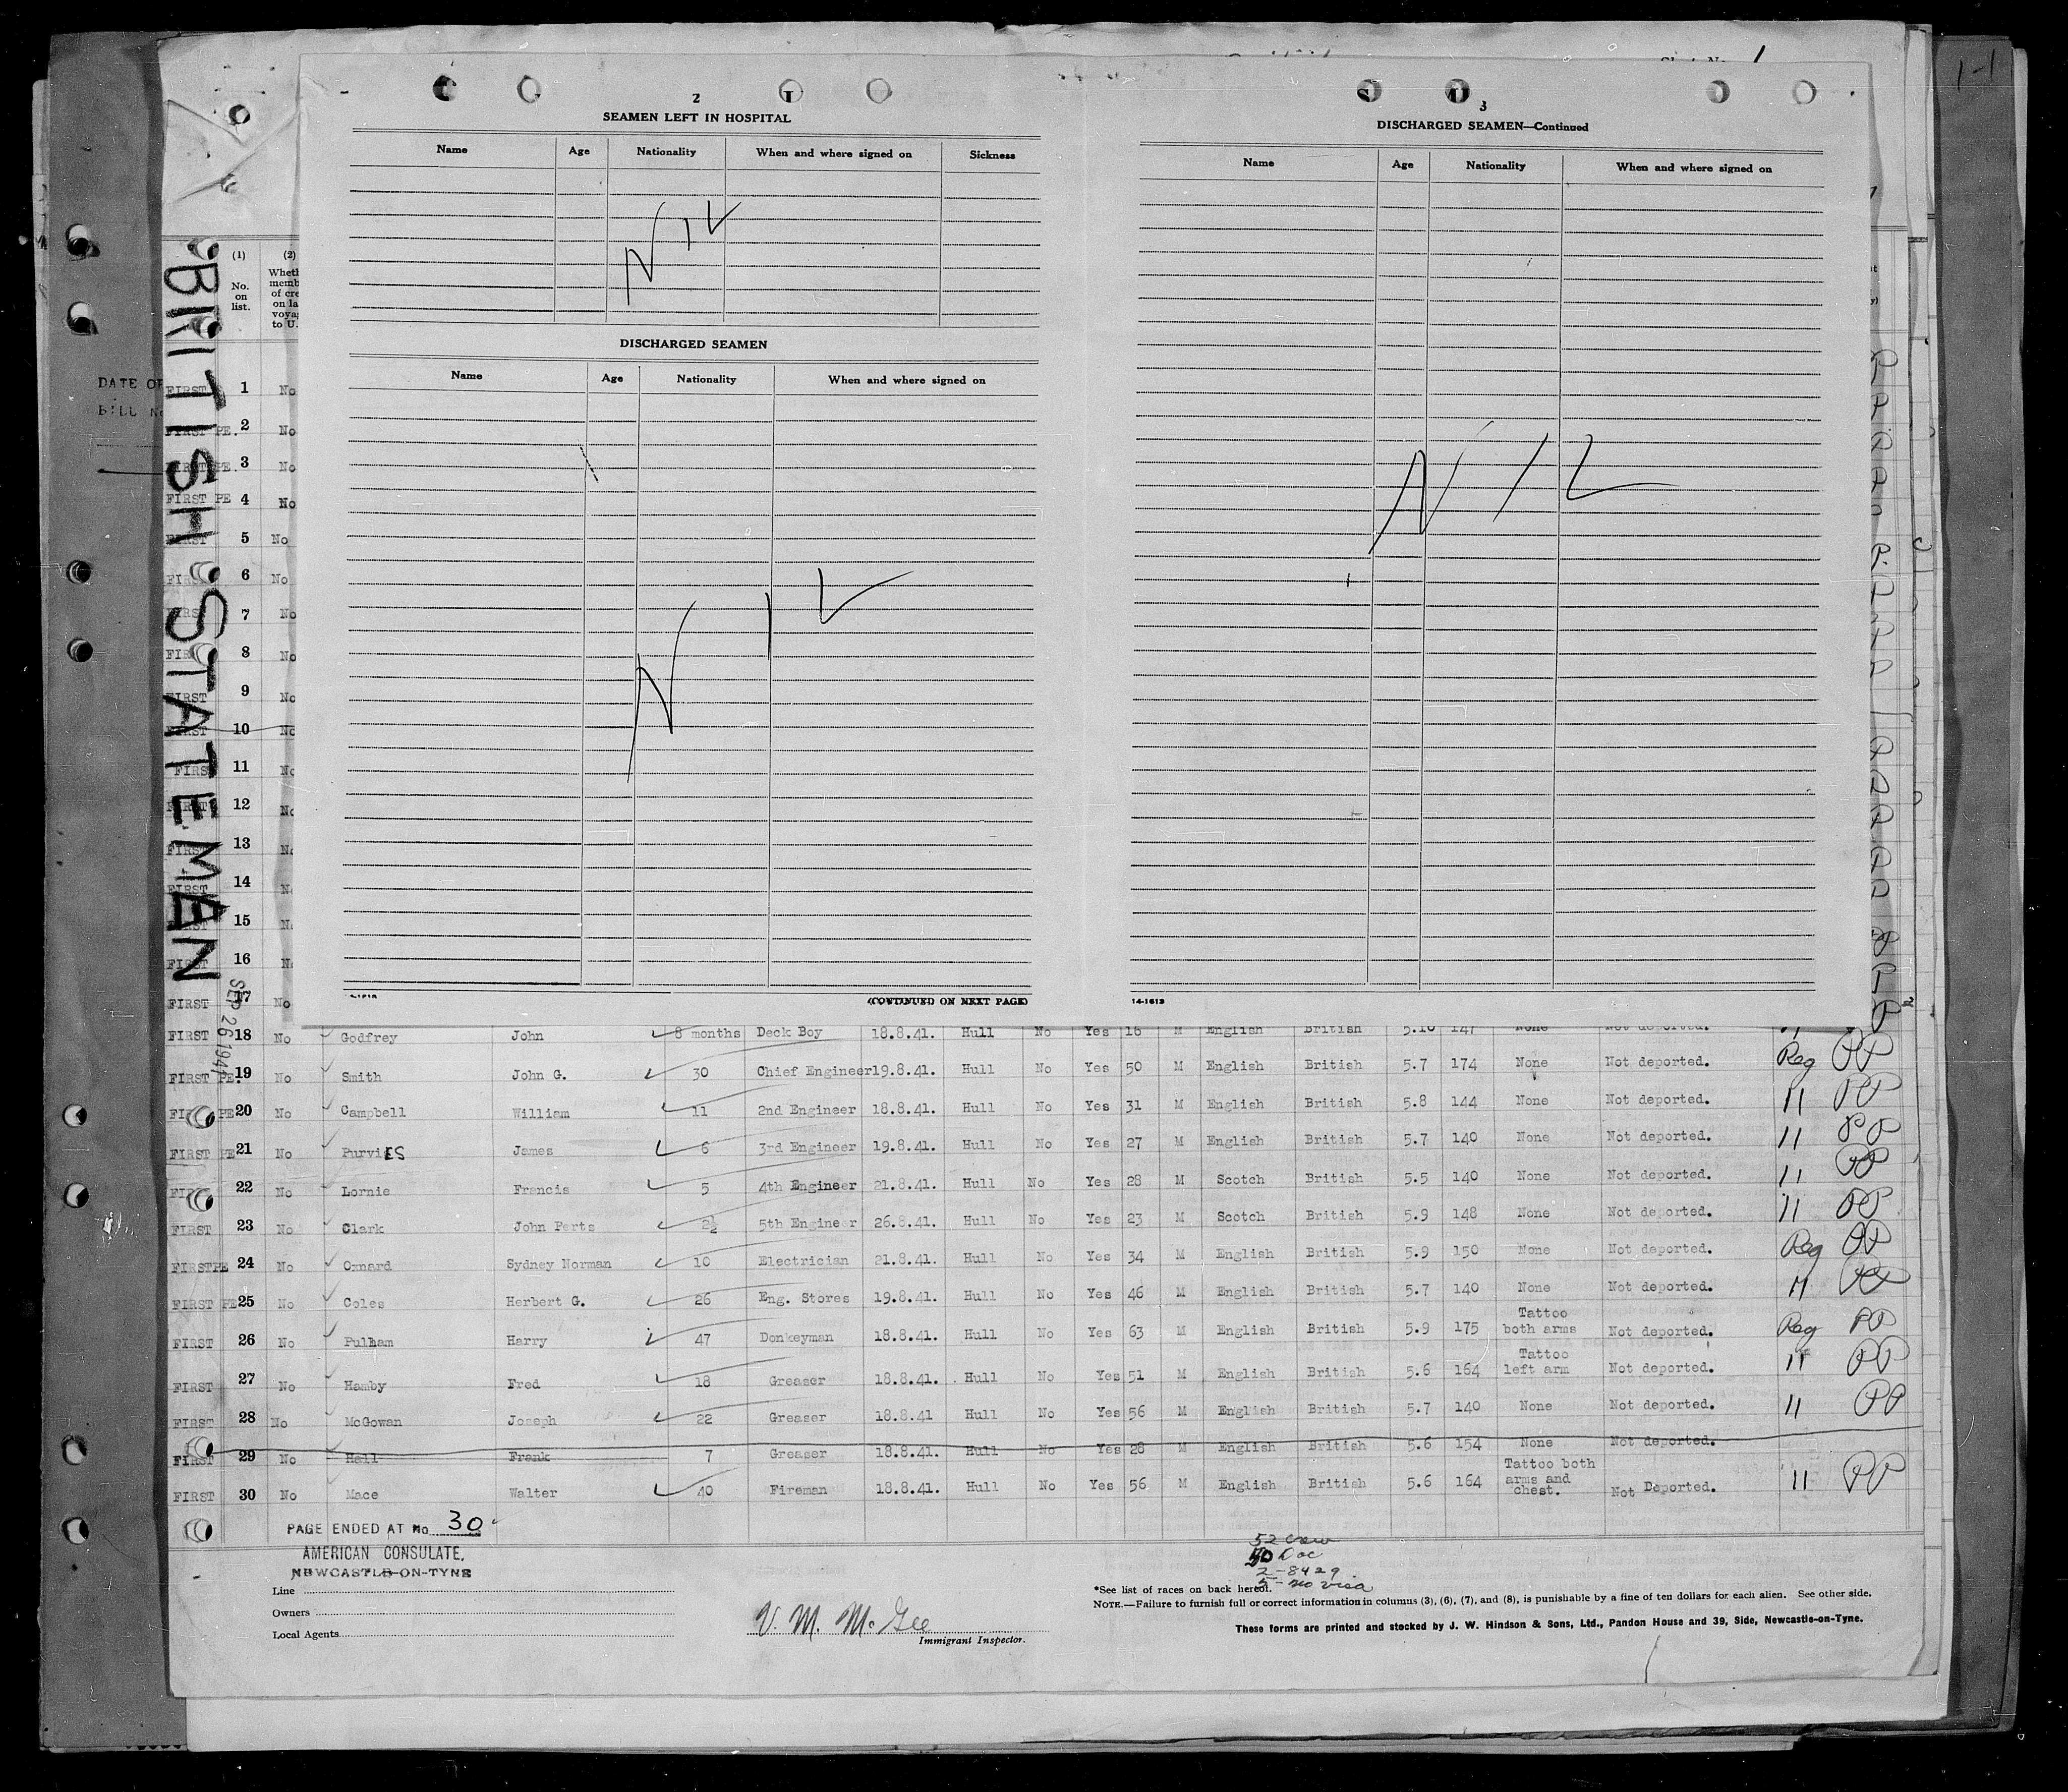 2
SEAMEN LEFT IN HOSPITAL
Name Age Nationality When and where signed on Sickness
NIL
DISCHARGED SEAMEN
Name Age Nationality When and where signed on
NIL
(CONTINUED ON NEXT PAGE)
3
DISCHARGED SEAMEN—Continued
Name Age Nationality When and where signed on
NIL
14-1613
1-1
BRITISH STATEMAN
SEP 26 1941
DATE OF
BILL No
(1) (2)
No. on list.
Wheth
memb
of cre
on la
voya
to U.
FIRST 1 No
FIRST PE. 2 No
FIRST PE. 3 No
FIRST PE 4 No
FIRST 5 No
FIRST 6 No
FIRST 7 No
FIRST 8 No
FIRST 9 No
FIRST 10 No
FIRST 11 No
FIRST 12 No
FIRST 13 No
FIRST 14 No
FIRST 15 No
FIRST 16 No
FIRST 17 No
FIRST 18 No Godfrey John 8 months Deck Boy 18.8.41. Hull No Yes 16 M English British 5.10 147 None Not deported. 11
FIRST PE. 19 No Smith John G. 30 Chief Engineer 19.8.41. Hull No Yes 50 M English British 5.7 174 None Not deported. Reg PP
FIRST PE 20 No Campbell William 11 2nd Engineer 18.8.41. Hull No Yes 31 M English British 5.8 144 None Not deported. 11 PP
FIRST PE 21 No Purvies James 6 3rd Engineer 19.8.41. Hull No Yes 27 M English British 5.7 140 None Not deported. 11 PP
FIRST 22 No Lornie Francis 5 4th Engineer 21.8.41. Hull No Yes 28 M Scotch British 5.5 140 None Not deported. 11 PP
FIRST 23 No Clark John Ferts 2½ 5th Engineer 26.8.41. Hull No Yes 23 M Scotch British 5.9 148 None Not deported. 11 PP
FIRST PE 24 No Oxnard Sydney Norman 10 Electrician 21.8.41. Hull No Yes 34 M English British 5.9 150 None Not deported. Reg PP
FIRST PE 25 No Coles Herbert G. 26 Eng. Stores 19.8.41. Hull No Yes 46 M English British 5.7 140 None Not deported. 11 PP
FIRST 26 No Pulham Harry 47 Donkeyman 18.8.41. Hull No Yes 63 M English British 5.9 175 Tattoo both arms Not deported. Reg PP
FIRST 27 No Hamby Fred 18 Greaser 18.8.41. Hull No Yes 51 M English British 5.6 164 Tattoo left arm Not deported. 11 PP
FIRST 28 No McGowan Joseph 22 Greaser 18.8.41 Hull No Yes 56 M English British 5.7 140 None Not deported. 11 PP
FIRST 29 No Hall Frank 7 Greaser 18.8.41. Hull No Yes 28 M English British 5.6 154 None Not deported.
FIRST 30 No Mace Walter 40 Fireman 18.8.41. Hull No Yes 56 M English British 5.6 164 Tattoo both arms and chest. Not Deported. 11 PP
PAGE ENDED AT No. 30
AMERICAN CONSULATE,
NEWCASTLE-ON-TYNE
Line
Owners
Local Agents
V. M. McGee
Immigrant Inspector.
52 Crew
50 Doc
2-8429
5-no visa
*See list of races on back hereof.
NOTE.—Failure to furnish full or correct information in columns (3), (6), (7), and (8), is punishable by a fine of ten dollars for each alien. See other side.
These forms are printed and stocked by J. W. Hindson & Sons, Ltd., Pandon House and 39, Side, Newcastle-on-Tyne.